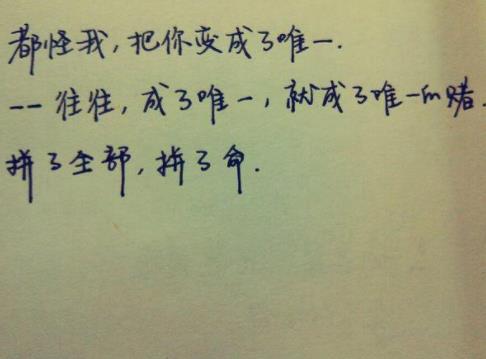 都怪我,把你变成了唯一.
-- 往往,成了唯一,就成了唯一的赌.
拼了全部,拼了命.